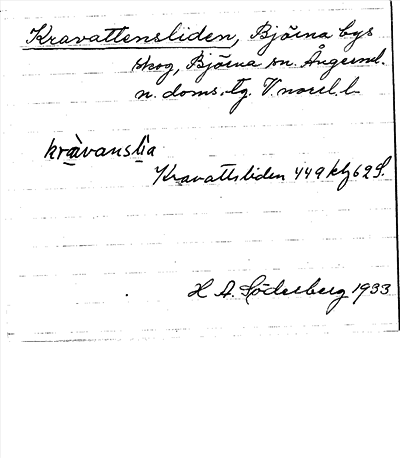 Kravattensliden, Björna bys
skog, Björna sn. Ångerml.
n. doms. tg. V.norrl. l.
kràvanslia
Kravattsliden 449 ktj 62 S.
H A. Söderberg 1933